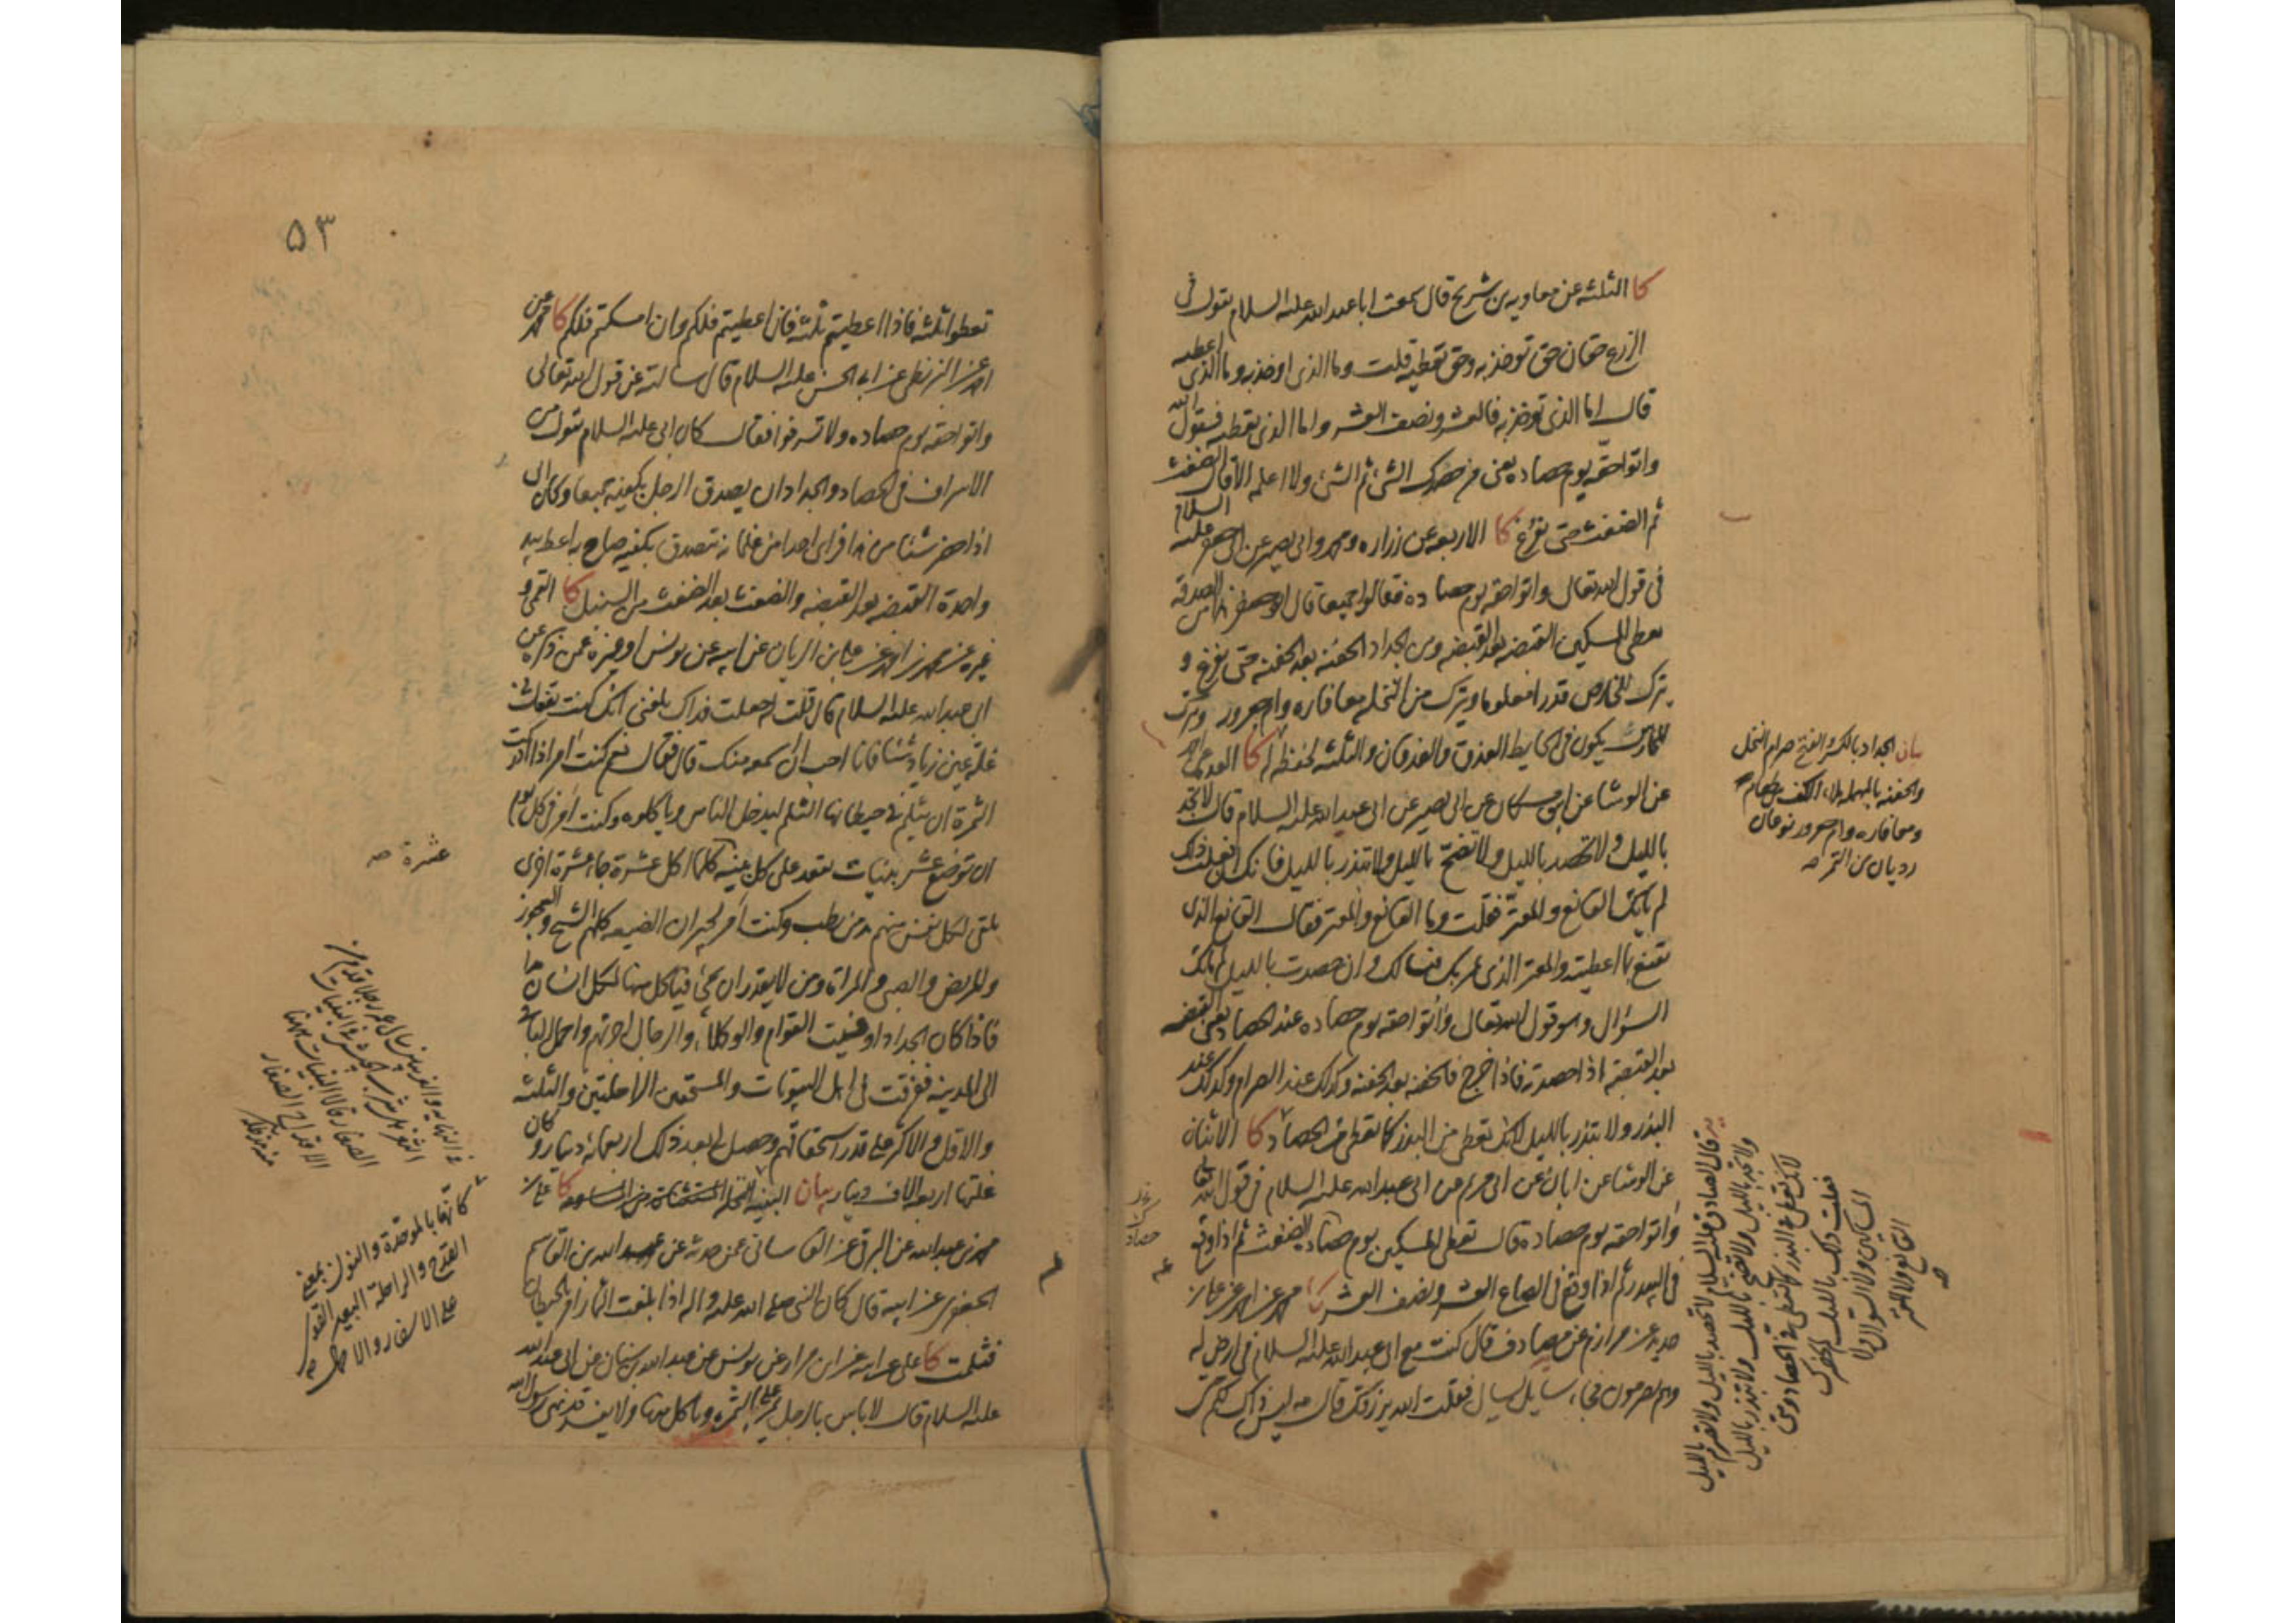 كا الثلثه عن معاويه بن شريح قال سمعت ابا عبد الله عليه السلام يقول في
الزرع حقان حق توخذ به وحق تعطيه قلت وما الذي اوخذ به وما الذي اعطيه
قال اما الذي توخذ به فالعشر ونصف العشر واما الذي تعطيه فقول الله
واتوا حقه يوم حصاده يعني من حضرك الشئ ثم الشئ ولا اعلمه الا قال الضغث
ثم الضغث حتى يفرغ كا الاربعه عن زراره ومحمد وابي بصير عن ابي جعفر عليه السلام
في قول الله تعالى واتوا حقه يوم حصاده فقالوا جميعا قال ابو جعفر هذا من الصدقه
يعطى المسكين القبضه بعد القبضه ومن الجداد الحفنه بعد الحفنه حتى يفرغ و
يترك للخارص قدرا معلوما ويترك من النخله معافاره وام جعرور ويترك
للحارس يكون في الحايط العذق والعذقان والثلثه لحفظه له كا العده عن احمد
عن الوشا عن ابن مسكان عن ابي بصير عن ابي عبد الله عليه السلام قال لا تجد
بالليل ولا تحصد بالليل ولا تضح بالليل ولا تبذر بالليل فانك ان فعلت ذلك
لم ياتك القانع والمعتر فقلت وما القانع والمعتر فقال القانع الذي
يقنع بما اعطيته والمعتر الذي يمر بك فيسالك وان حصدت بالليل لم ياتك
السؤال وهو قول الله تعالى واتوا حقه يوم حصاده عند الحصاد يعني القبضه
بعد القبضه اذا حصدته فاذا خرج فالحفنه بعد الحفنه وكذلك عند الصرام وكذلك عند
البذر ولا تبذر بالليل لانك تعطي من البذر كما تعطي في الحصاد كا الاثنان
عن الوشا عن ابان عن ابي مريم عن ابي عبد الله عليه السلام في قول الله تعالى
واتوا حقه يوم حصاده قال تعطي المسكين يوم حصادك الضغث ثم اذا وقع
في البيدر ثم اذا وقع في الصاع العشر ونصف العشر كا محمد عن احمد عن علي بن
حديد عن مرازم عن مصادف قال كنت مع ابي عبد الله عليه السلام في ارض له
وهم يصرمون فجاء سايل يسال فقلت الله يرزقك قال مه ليس ذاك لكم حتى
بيان الجداد بالكسر والفتح صرام النخل
والحفنه بالمهمله ملاء الكف من طعام
ومعافاره وام جعرور نوعان
رديان من التمر
يه قال الصادق عليه السلام لا تحصد بالليل ولا تصرم بالليل
ولا تجد بالليل ولا تضح بالليل ولا تبذر بالليل
لانك تعطي في البذر كما تعطي في الحصاد ومتى
فعلت ذلك بالليل لم يحضرك
المساكين ولا السؤال ولا
القانع ولا المعتر
٥٣
تعطوا ثلثه فاذا اعطيتم ثلثه فان اعطيتم فلكم وان امسكتم فلكم كا محمد عن
احمد عن البزنطي عن ابي الحسن عليه السلام قال سالته عن قول الله تعالى
واتوا حقه يوم حصاده ولا تسرفوا فقال كان ابي عليه السلام يقول من
الاسراف في الحصاد والجداد ان يصدق الرجل بكفيه جميعا وكان ابي
اذا حضر شيئا من هذا فراى احدا من غلمانه يتصدق بكفيه صاح به اعط بيد
واحدة القبضه بعد القبضه والضغث بعد الضغث من السنبل كا القمي و
غيره عن محمد بن احمد عن علي بن الريان عن ابيه عن يونس او غيره عمن ذكره عن
ابي عبد الله عليه السلام قال قلت له جعلت فداك بلغني انك كنت تفعل في
غله عين زياد شيئا فانا احب ان اسمعه منك قال فقال نعم كنت امر اذا ادركت
الثمرة ان يثلم في حيطانها الثلم ليدخل الناس وياكلوه وكنت امر في كل يوم
ان توضع عشر بنيات يقعد على كل بنيه كلما اكل عشرة جاء عشرة اخرى
يلقى لكل نفس منهم مد من رطب وكنت امر لجيران الضيعه كلهم الشيخ والعجوز
والمريض والصبي والمراة ومن لا يقدر ان يجئ فياكل منها لكل انسان مد
فاذا كان الجداد اوفيت القوام والوكلاء والرجال اجرتهم واحمل الباقي
الى المدينه ففرقت في اهل البيوتات والمستحقين الراحلتين والثلثه
والاقل والاكثر على قدر استحقاقهم وحصل لي بعد ذلك اربعمائه دينار وكان
غلتها اربعه الاف دينار بيان
كا علي بن
محمد بن عبد الله عن البرقي عن القاساني عمن حدثه عن عبد الله بن القاسم
الجعفري عن ابيه قال كان النبي صلى الله عليه واله اذا بلغت الثمار امر بالحيطان
فثلمت كا علي عن ابيه عن ابن مرار عن يونس عن عبد الله بن سنان عن ابي عبد الله
عليه السلام قال لا باس بالرجل يمر على الثمره وياكل منها ولا يفسد قد نهى رسول الله
عشرة
كانها بالموحدة والنون بمعنى
القدح والراحلة البعير القوي
على الاسفار والاحمال